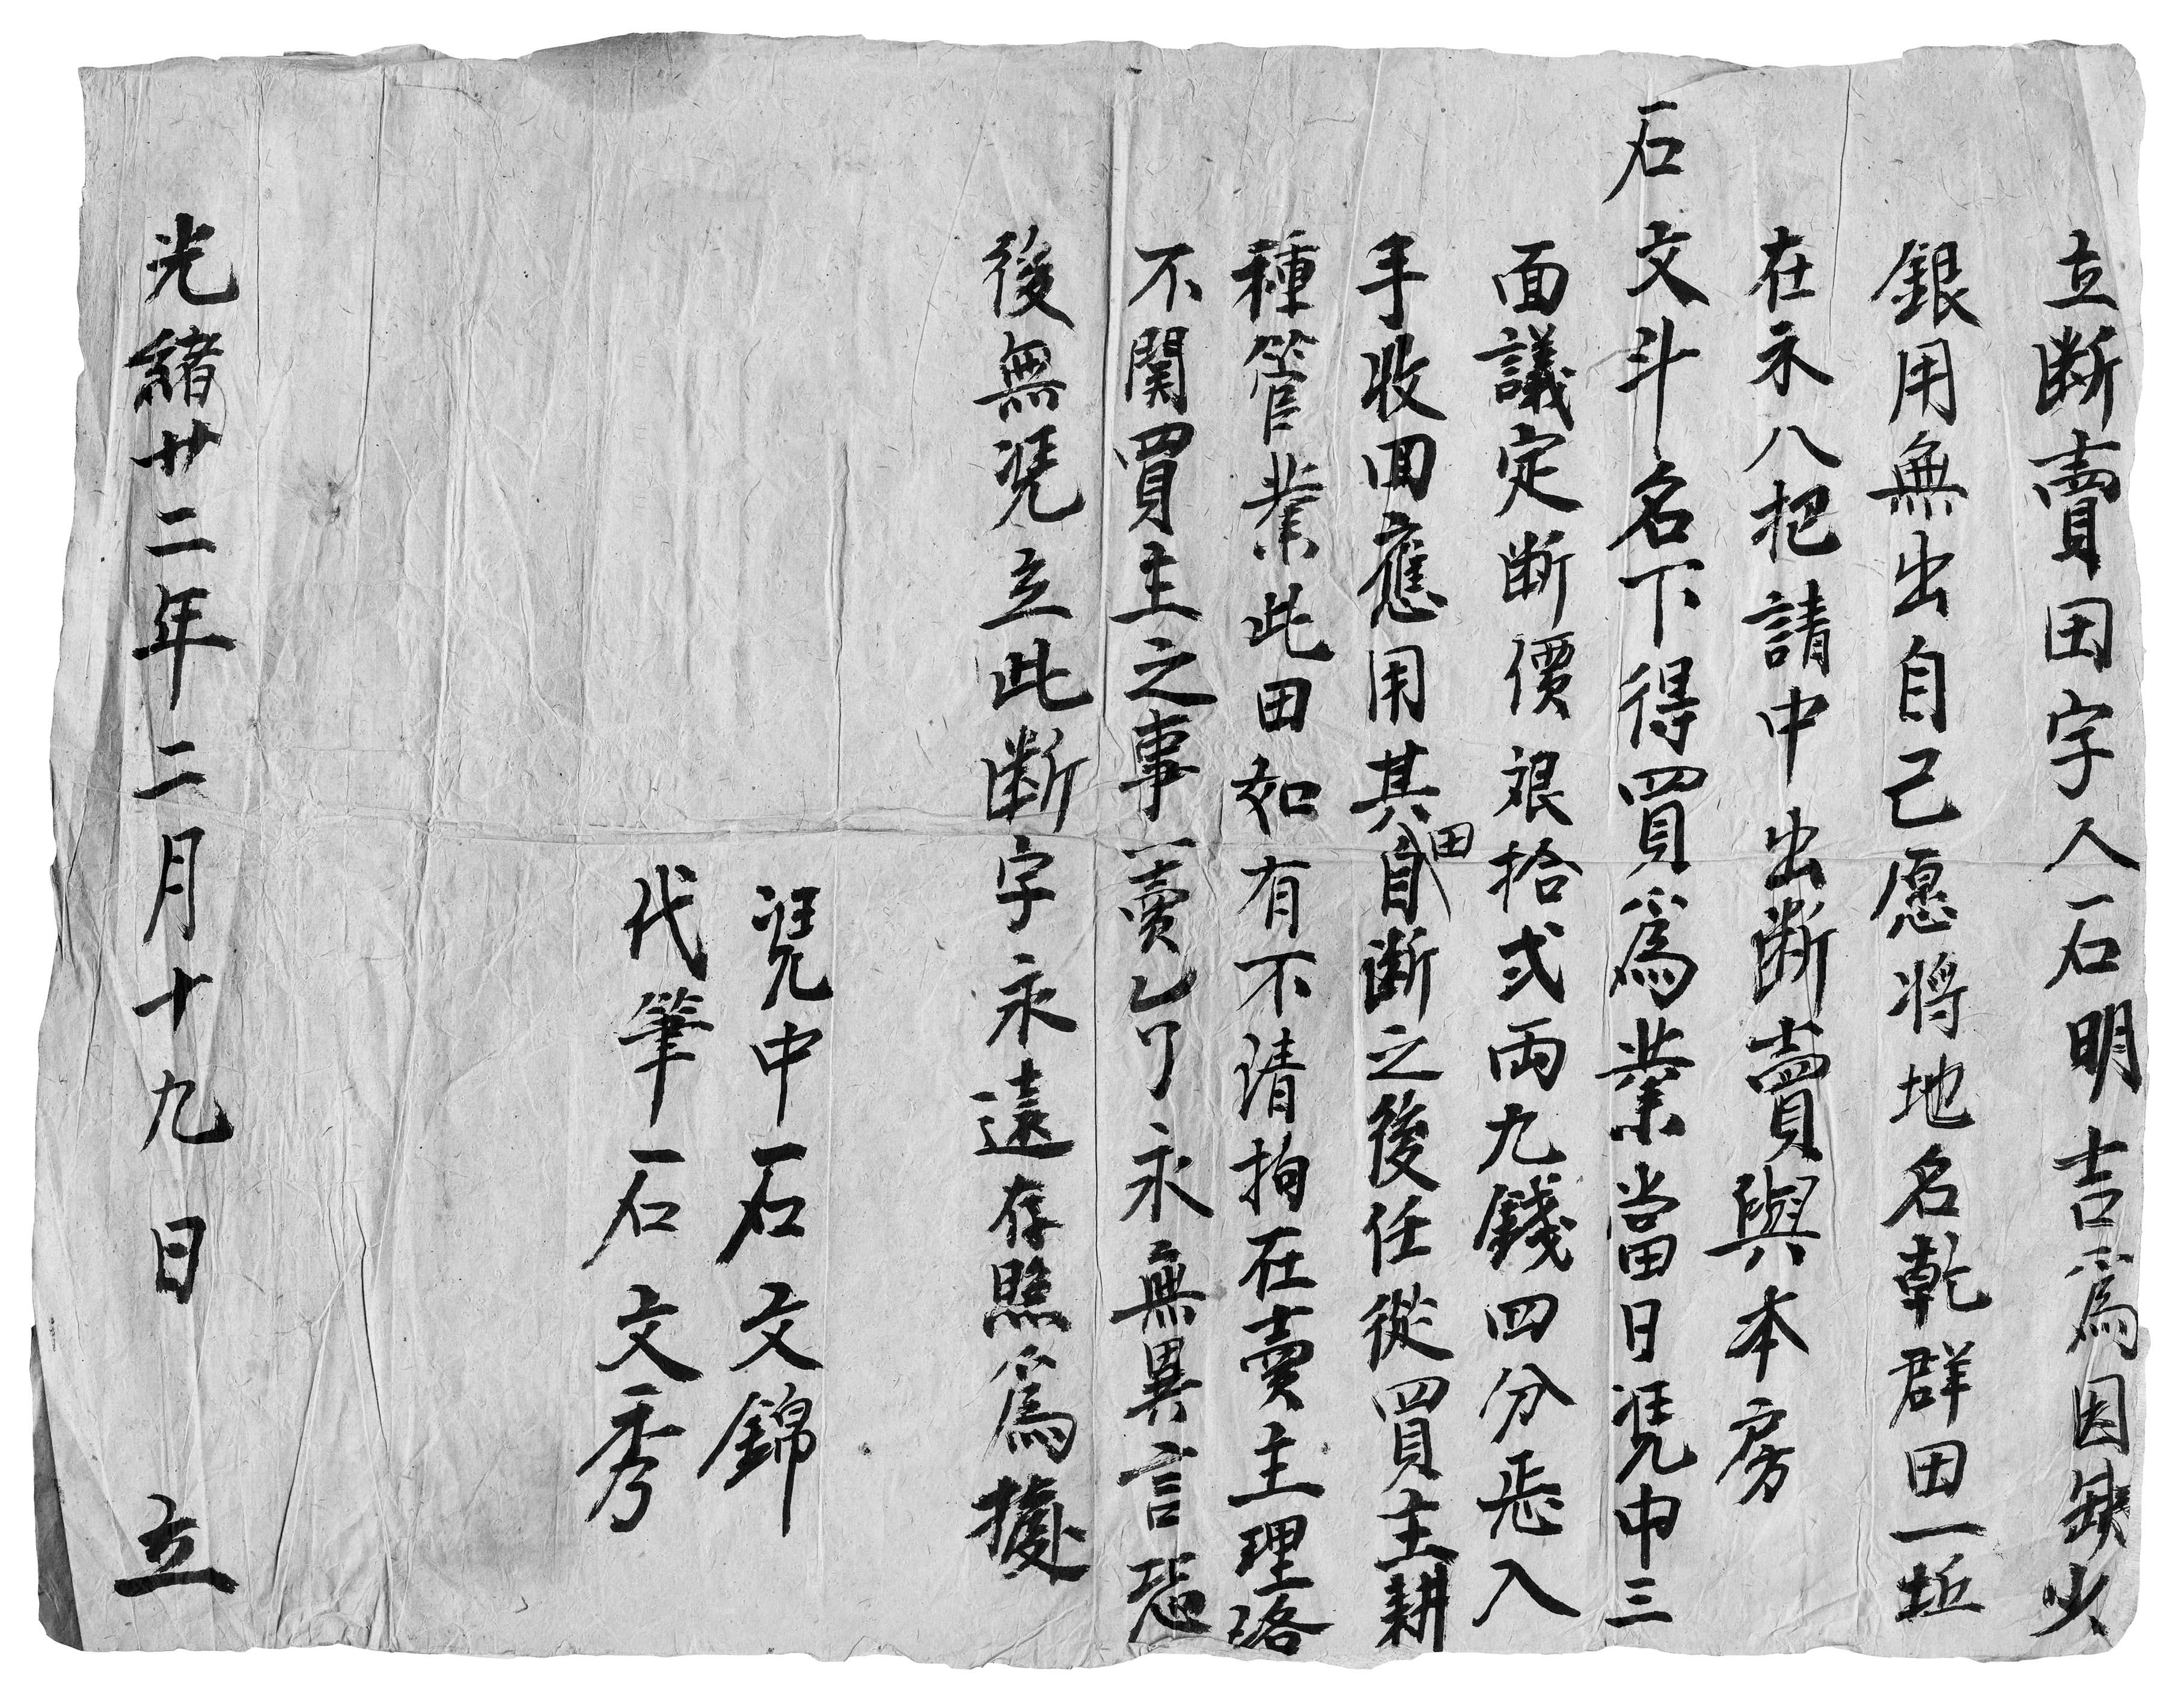 立断賣田字人石明吉為因缺少
銀用無出自己愿将地名乾群田一坵
在禾八把請中出断賣與本房
石文斗名下得買為業當日凴中三
面議定断價艮拾弍兩九錢四分悉入
手收回應用其田自断之後任從買主耕
種管業此田如有不清拘在賣主理珞
不関買主之事一賣乙了永無異言恐
後無凴立此断字永遠存照為據
凴中石文錦
代筆石文秀
光緒廿二年二月十九日立